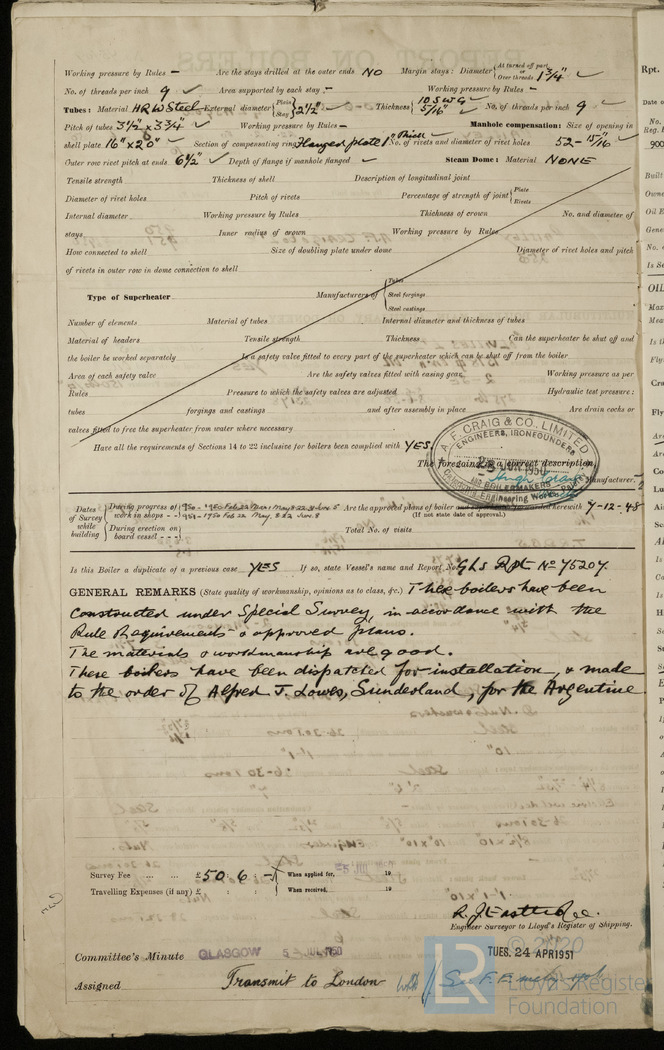 Working pressure by Rules – Are the stays drilled at the outer ends NO Margin stays: Diameter { At turned off part or Over threads 1 3/4" ✓
No. of threads per inch 9 ✓ Area supported by each stay – Working pressure by Rules –
Tubes: Material HRW Steel External diameter { Plain Stay } 2 1/2" ✓ Thickness { 10 SWG 5/16" ✓ No. of threads per inch 9 ✓
Pitch of tubes 3 1/2 x 3 3/4" ✓ Working pressure by Rules – Manhole compensation: Size of opening in
shell plate 16" x 20" ✓ Section of compensating ring Flanged plate 1" Thick ✓ No. of rivets and diameter of rivet holes 52 – 15/16 ✓
Outer row rivet pitch at ends 6 1/2 ✓ Depth of flange if manhole flanged ✓ Steam Dome: Material NONE
Tensile strength Thickness of shell Description of longitudinal joint
Diameter of rivet holes Pitch of rivets Percentage of strength of joint { Plate Rivets
Internal diameter Working pressure by Rules Thickness of crown No. and diameter of
stays Inner radius of crown Working pressure by Rules
How connected to shell Size of doubling plate under dome Diameter of rivet holes and pitch
of rivets in outer row in dome connection to shell
Type of Superheater Manufacturers of { Tubes Steel forgings Steel castings
Number of elements Material of tubes Internal diameter and thickness of tubes
Material of headers Tensile strength Thickness Can the superheater be shut off and
the boiler be worked separately Is a safety valve fitted to every part of the superheater which can be shut off from the boiler
Area of each safety valve Are the safety valves fitted with easing gear Working pressure as per
Rules Pressure to which the safety valves are adjusted Hydraulic test pressure:
tubes forgings and castings and after assembly in place Are drain cocks or
valves fitted to free the superheater from water where necessary
Have all the requirements of Sections 14 to 22 inclusive for boilers been complied with YES.
A. F. CRAIG & CO. LIMITED
ENGINEERS, IRONFOUNDERS
AND BOILERMAKERS
Engineering Works
The foregoing is a correct description,
Manufacturer.
Dates of Survey while building { During progress of work in shops - - During erection on board vessel - - - Are the approved plans of boiler and superheater forwarded herewith 7-12-48
(If not state date of approval.)
Total No. of visits
Is this Boiler a duplicate of a previous case YES If so, state Vessel's name and Report No. Gls Rpt No 75207.
GENERAL REMARKS (State quality of workmanship, opinions as to class, &c.) These boilers have been
constructed under Special Survey, in accordance with the
Rule Requirements & approved plans.
The materials & workmanship are good.
These boilers have been dispatched for installation, & made
to the order of Alfred J. Lowes, Sunderland, for the Argentine
Survey Fee ... ... £50 : 6 : – When applied for, 19
Travelling Expenses (if any) £ : : When received, 19
Engineer Surveyor to Lloyd's Register of Shipping.
Committee's Minute GLASGOW 5 – JUL 1950 TUES. 24 APR 1951
Assigned Transmit to London
© 2020
LR Lloyd's Register
Foundation
Rpt.